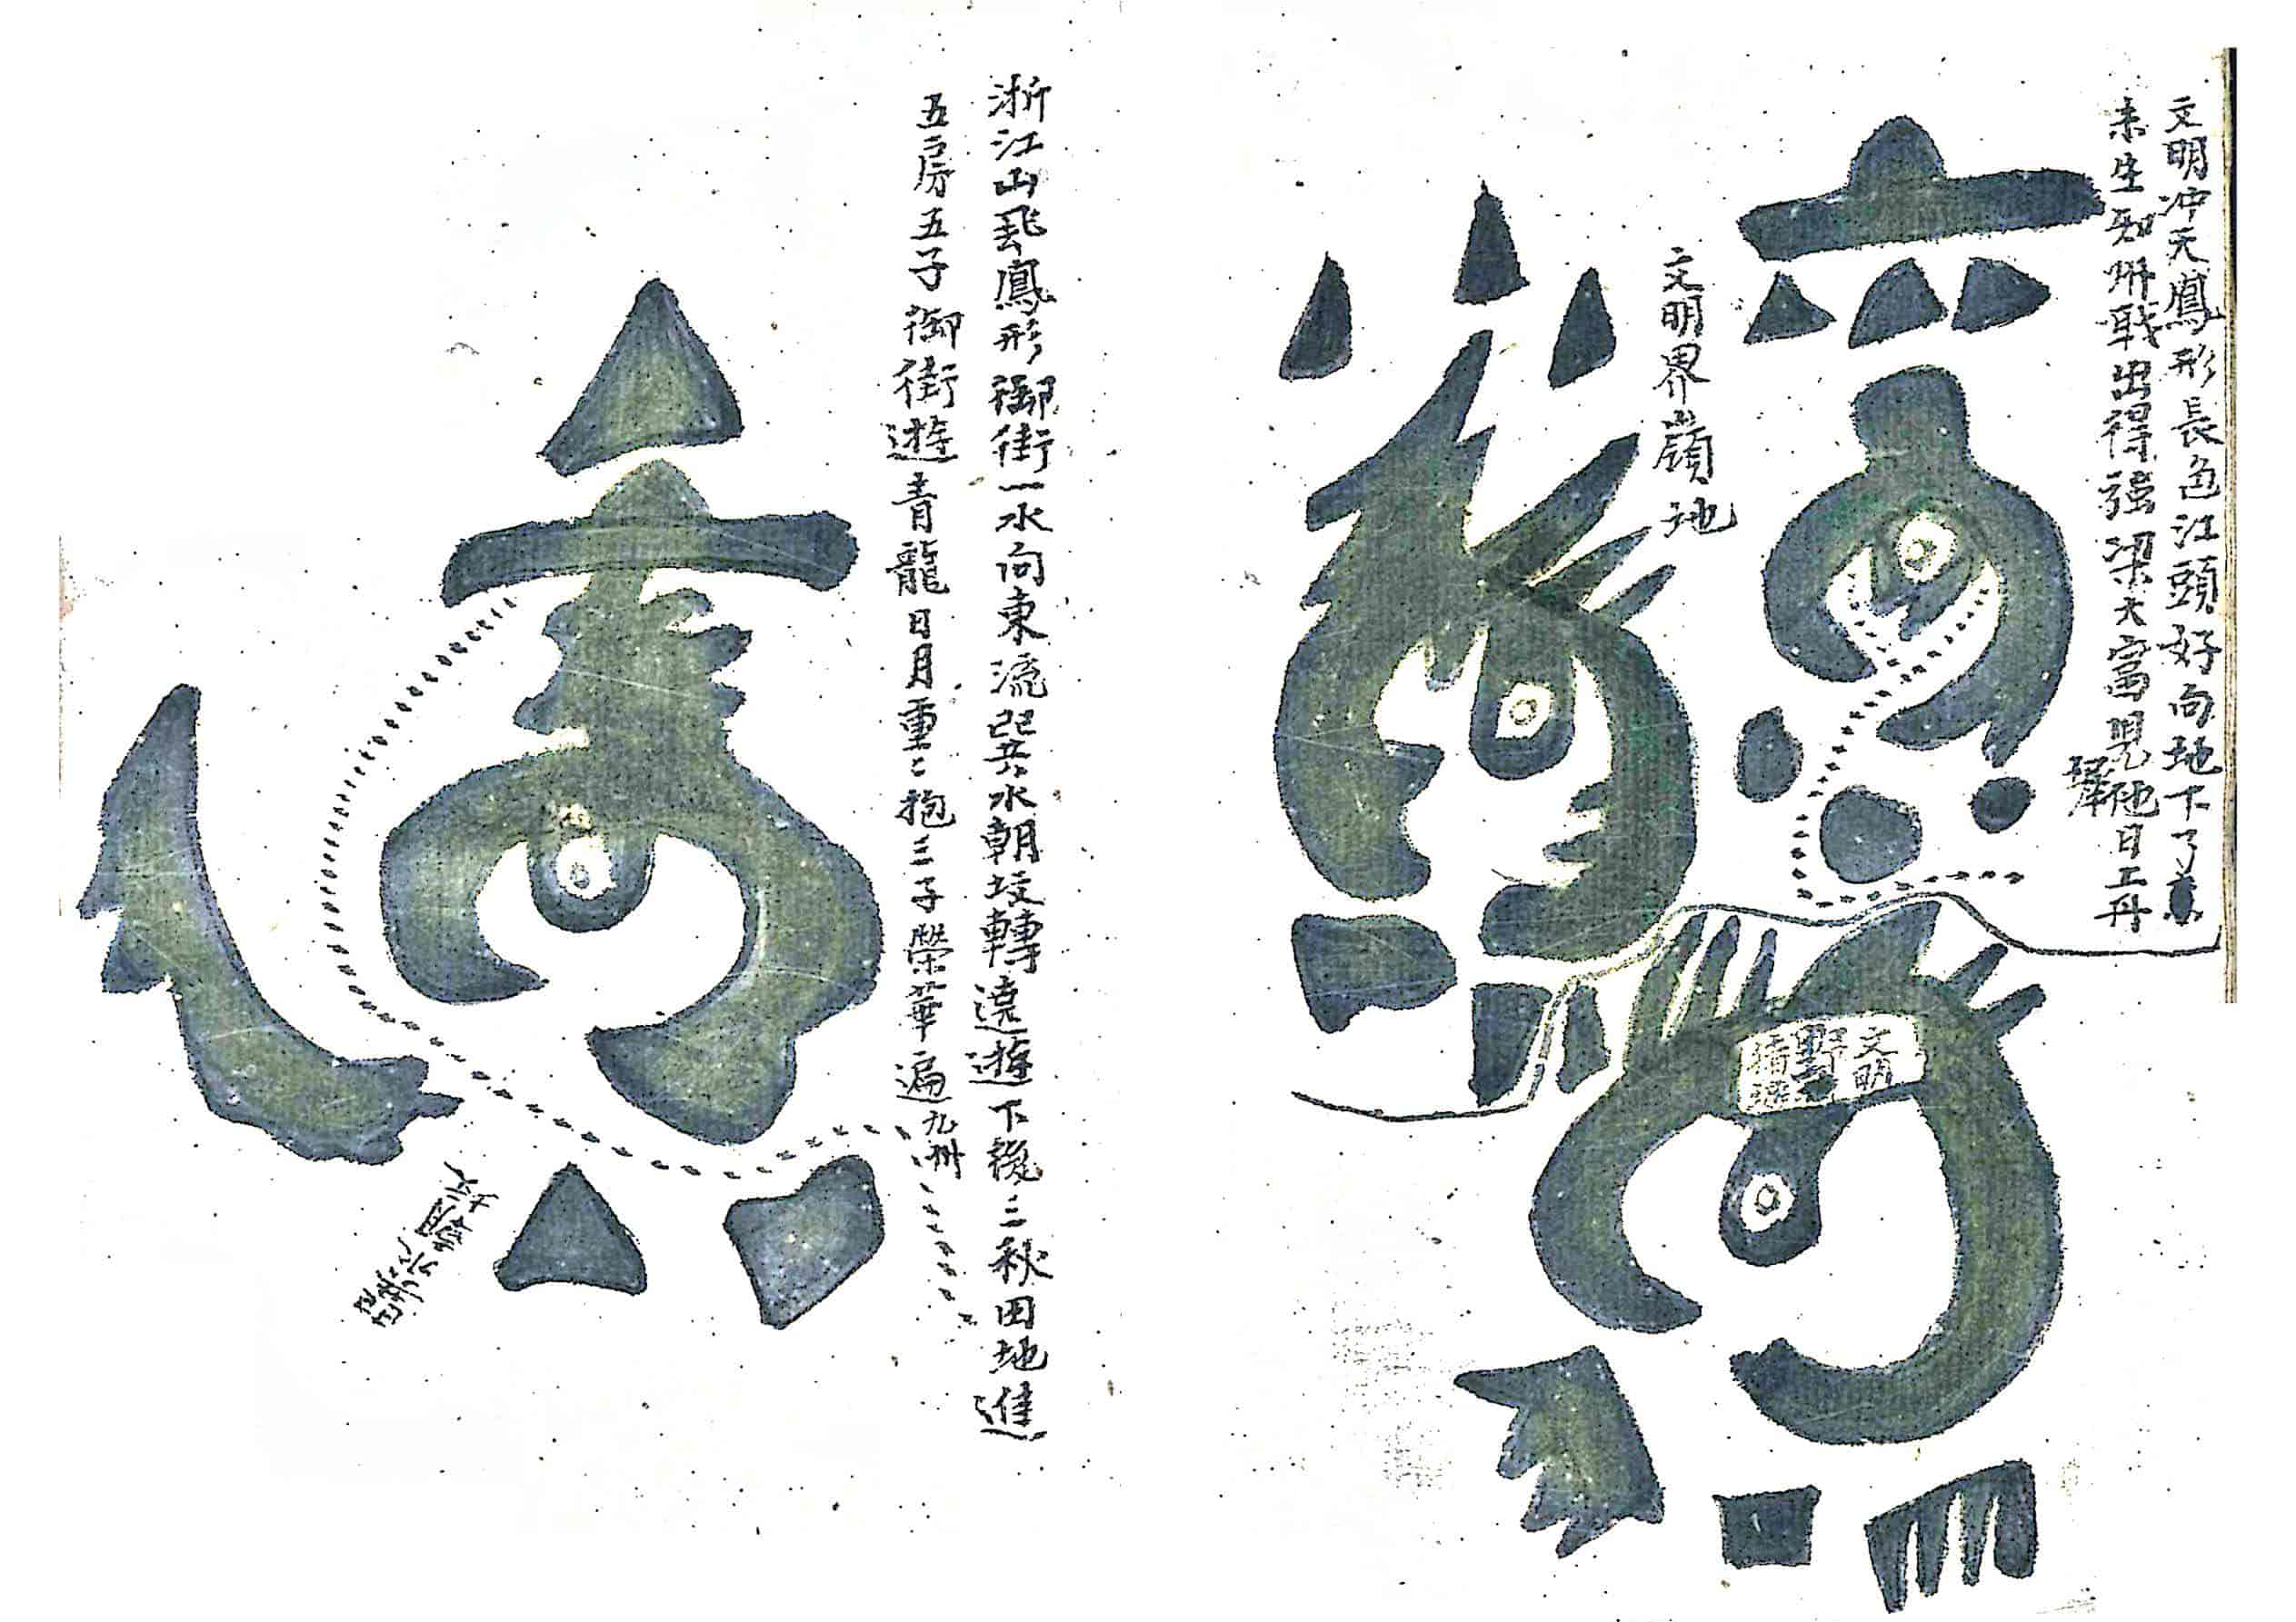 文明冲天鳳形長色江頭好向地下了
未生知 戰出得强梁大富見他日工丹
文明界嶺地
文明
野
浙江山飛鳳形御街一水向東流巽水朝坟轉遶遊下後三秋田地進
五房五子御街遊青龍日月重〻抱三子榮華遍九州
巽水朝堂